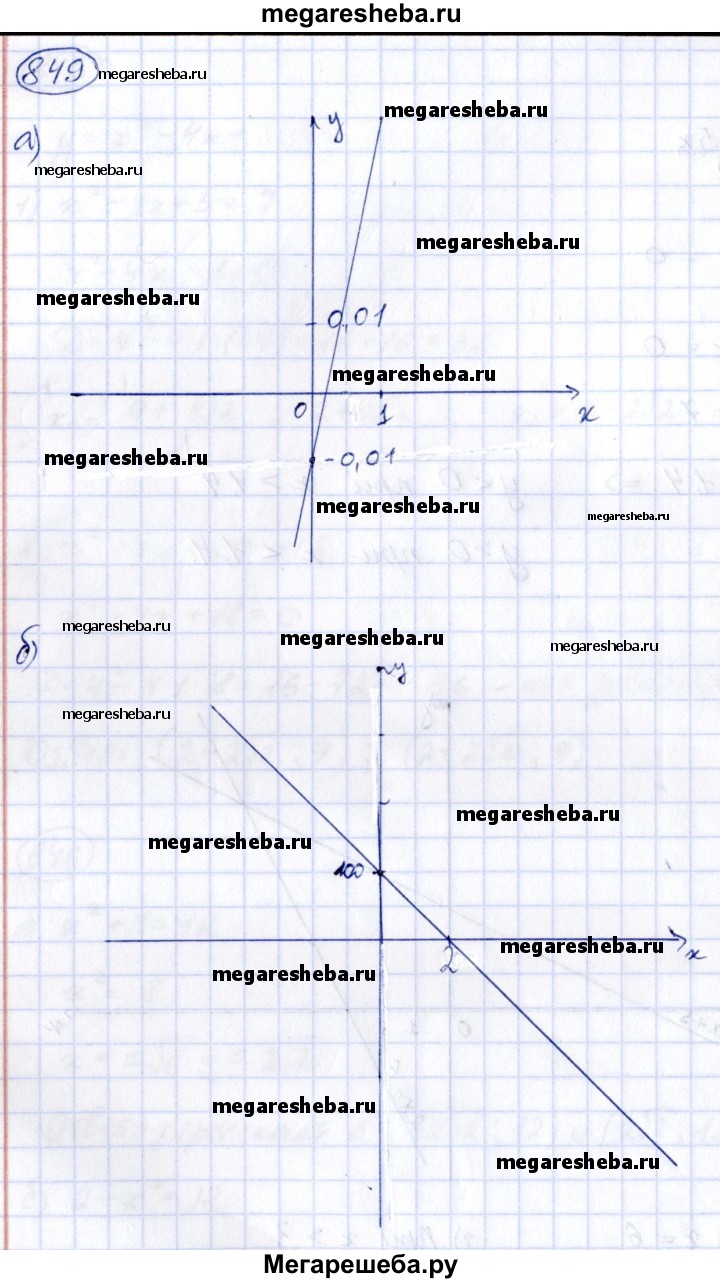 megaresheba.ru
849 megaresheba.ru
y megaresheba.ru
а)
megaresheba.ru
megaresheba.ru
megaresheba.ru
0,01
megaresheba.ru
0 1 x
megaresheba.ru -0,01
megaresheba.ru
megaresheba.ru
megaresheba.ru
megaresheba.ru
б) megaresheba.ru
y
megaresheba.ru
megaresheba.ru
megaresheba.ru
100
megaresheba.ru
2 x
megaresheba.ru
megaresheba.ru
megaresheba.ru
Мегарешеба.ру